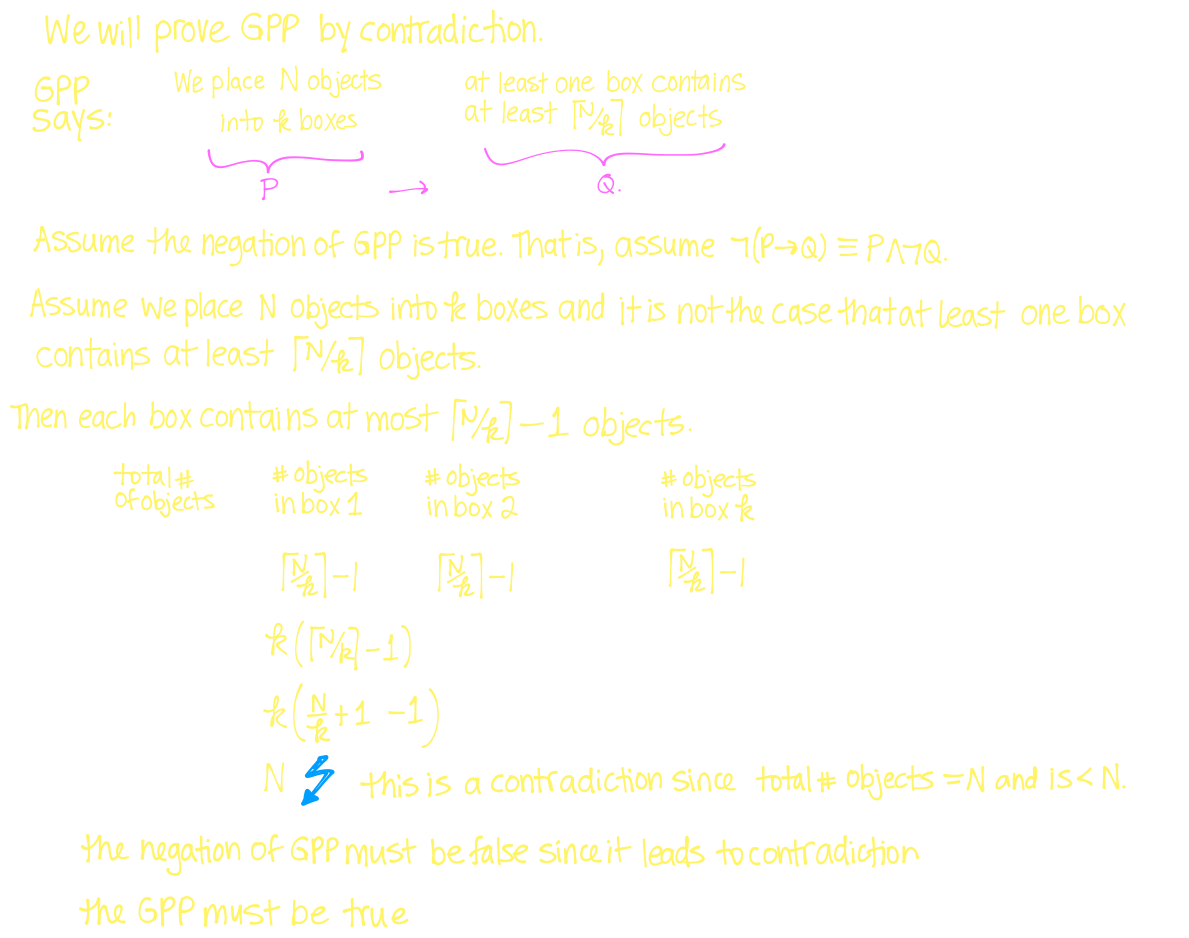 We will prove GPP by contradiction.
GPP says: We place N objects into k boxes at least one box contains at least ⌈N/k⌉ objects
P → Q.
Assume the negation of GPP is true. That is, assume ¬(P→Q) ≡ P∧¬Q.
Assume we place N objects into k boxes and it is not the case that at least one box
contains at least ⌈N/k⌉ objects.
Then each box contains at most ⌈N/k⌉ - 1 objects.
total # of objects # objects in box 1 # objects in box 2 # objects in box k
⌈N/k⌉ - 1 ⌈N/k⌉ - 1 ⌈N/k⌉ - 1
k(⌈N/k⌉ - 1)
k(N/k + 1 - 1)
N this is a contradiction since total # objects = N and is < N.
the negation of GPP must be false since it leads to contradiction
the GPP must be true